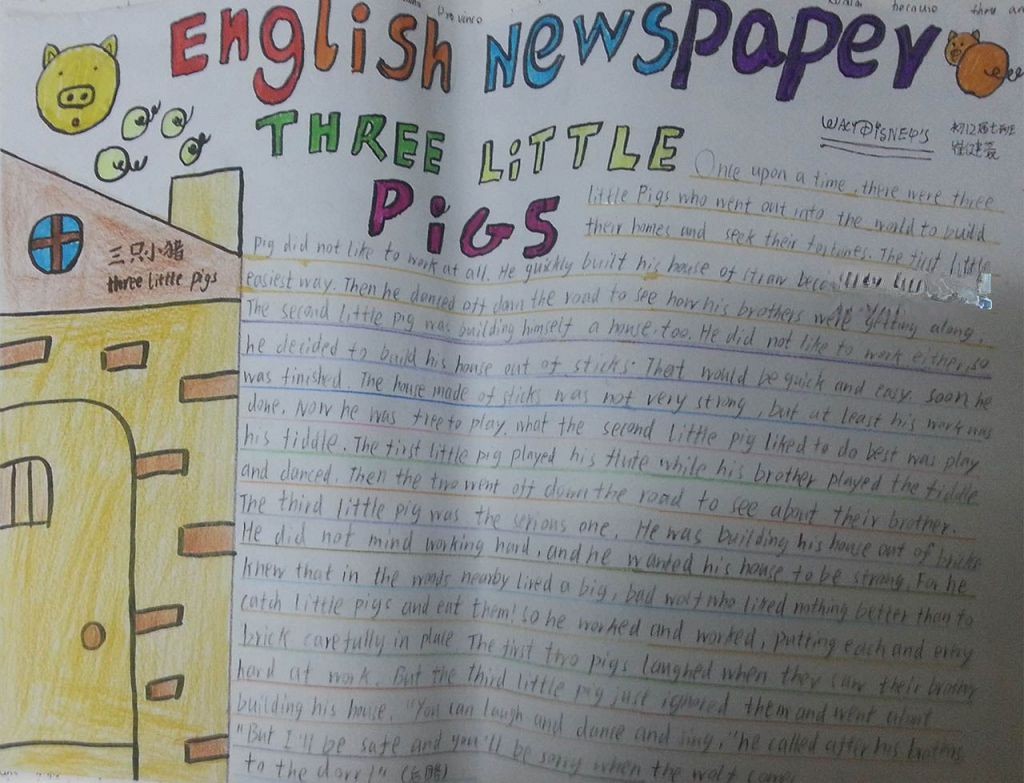 Province
because they an
English Newspaper
THREE LITTLE
PIGS
WALT DISNEY'S
初12届七班
三只小猪
three little pigs
Once upon a time, there were three
little Pigs who went out into the world to build
their homes and seek their fortunes. The first little
pig did not like to work at all. He quickly built his house of straw
easiest way. Then he danced off down the road to see how his brothers were getting along,
The second little pig was building himself a house, too. He did not like to work either, so
he decided to build his house out of sticks. That would be quick and easy. soon he
was finished. The house made of sticks was not very strong, but at least his work was
done. Now he was free to play. what the second little pig liked to do best was play
his fiddle. The first little pig played his flute while his brother played the fiddle
and danced. Then the two went off down the road to see about their brother.
The third little pig was the serious one. He was building his house out of bricks
He did not mind working hard, and he wanted his house to be strong. For he
knew that in the woods nearby lived a big, bad wolf who liked nothing better than to
catch little pigs and eat them! so he worked and worked, putting each and every
brick carefully in place The first two pigs laughed when they saw their brother
hard at work. But the third little pig just ignored them and went about
building his house. "You can laugh and dance and sing," he called after his brothers
"But I'll be safe and you'll be sorry when the wolf comes
to the door!"